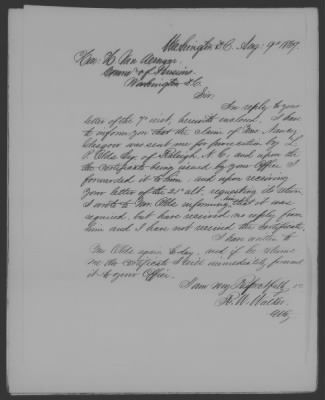 Washington D.C. Aug. 9th 1869.
Hon. H. Van Aernam
Comr of Pensions
Washington D.C.
Sir.
In reply to your
letter of the 7th inst, herewith enclosed. I have
to inform you that the claim of Mrs Nancy
Glasgow was sent me for prosecution by L.
P. Olds Esq. of Raleigh, N.C. and upon the
the Certificate being issued by your Office I
forwarded it to him, and upon receiving
your letter of the 21st ult. requesting its return
I wrote to Mr. Olds informing him that it was
required, but have received no reply from
him and I have not received the Certificate.
I have written to
Mr Olds again today, and if he returns
me the Certificate I will immediately forward
it to your Office.
I am very Respectfully
H. W. Walker
Atty